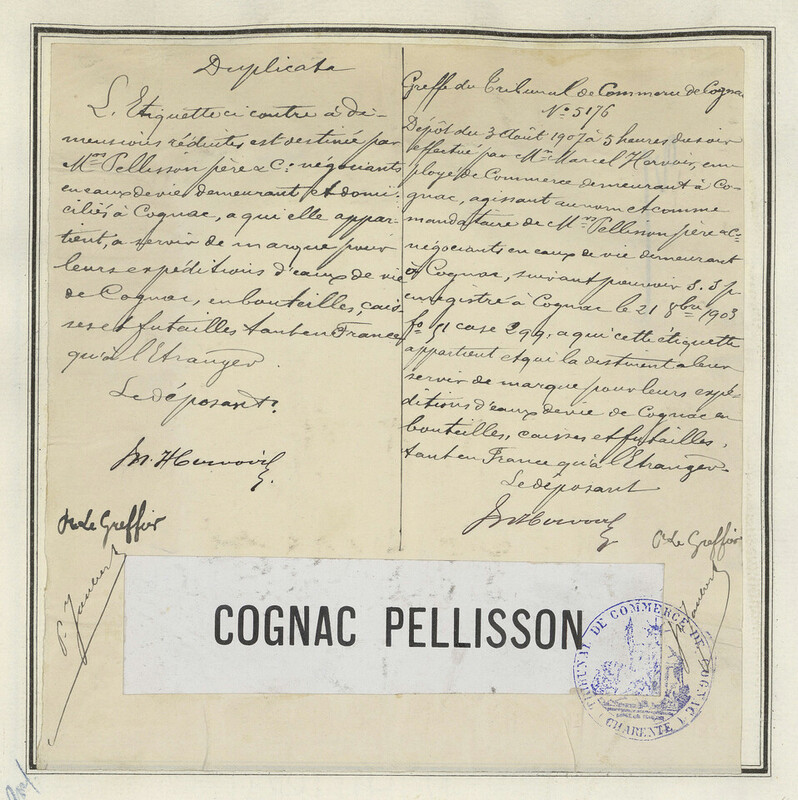 Duplicata
L'Etiquette ci contre à di-
mensions réduites est destinée par
Mrs Pellisson père & Co négociants
en eaux de vie demeurant et domi-
ciliés à Cognac, a qui elle appar-
tient, a servir de marque pour
leurs expéditions d'eaux de vie
de Cognac, en bouteilles, cais-
ses et futailles tant en France
qu'à l'Etranger.
Le déposant.
M. Hervoir
P. Le Greffier
P. Jaubert
Greffe du Tribunal de Commerce de Cognac
No 5176
Dépôt du 3 Août 1907 à 5 heures du soir
effectué par Mr Marcel Hervoir, em-
ployé de Commerce demeurant à Co-
gnac, agissant au nom et comme
mandataire de Mrs Pellisson père & Co
négociants en eaux de vie demeurant
à Cognac, suivant pouvoir S. S. p
enregistré à Cognac le 21 8bre 1903
fo 51 case 299, a qui cette étiquette
appartient et qui la destinent a leur
servir de marque pour leurs expé-
ditions d'eaux de vie de Cognac en
bouteilles, caisses et futailles,
tant en France qu'à l'Etranger.
Le déposant
M Hervoir
P. Le Greffier
Jaubert
COGNAC PELLISSON
TRIBUNAL DE COMMERCE DE COGNAC
CHARENTE